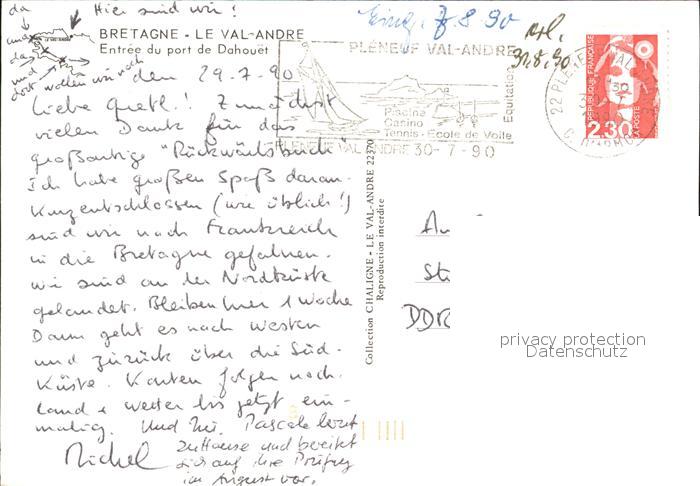 da
und
da
und
dort wollen wir noch
Hier sind wir!
BRETAGNE - LE VAL-ANDRE
Entrée du port de Dahouët
den 29.7.90
Liebe Gretl! Zunächst
vielen Dank für das
großartige "Rückwärtsbuch"
Ich habe großen Spaß daran.
Kurzentschlossen (wie üblich!)
sind wir nach Frankreich
in die Bretagne gefahren.
Wir sind an der Nordküste
gelandet. Bleiben hier 1 Woche
Dann geht es nach Westen
und zurück über die Süd-
Küste. Karten folgen noch.
Land + Wetter bis jetzt ein-
malig. Und Ihr. Pascale lernt
zuHause und bereitet
sich auf ihre Prüfung
im August vor.
Michel
Collection CHALIGNE - LE VAL-ANDRE 22370
Reproduction interdite
Eing. 7.8.90
erl.
31.8.90
PLENEUF VAL-ANDRE
Piscine
Casino
Tennis - Ecole de Voile
Equitation
PLENEUF VAL ANDRE 30-7-90
22 PLENEUF VAL
30
REPUBLIQUE FRANÇAISE
2,30
LA POSTE
A
St
DDR
privacy protection
Datenschutz